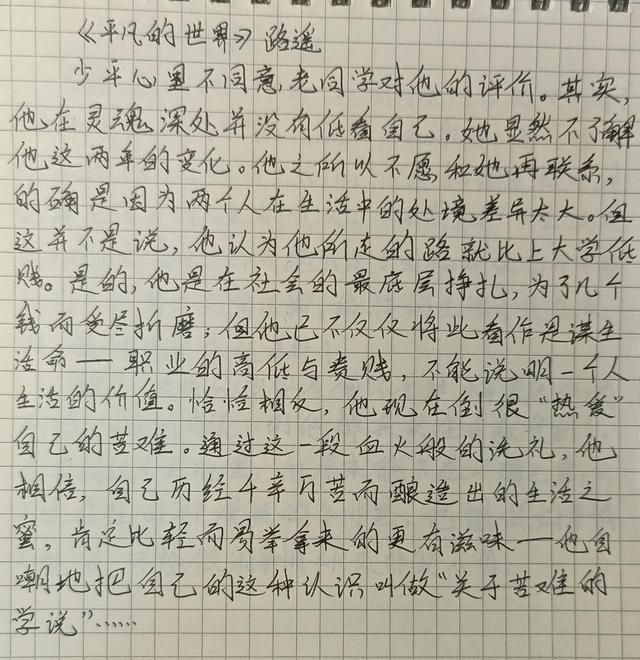 《平凡的世界》路遥
少平心里不同意老同学对他的评价。其实,
他在灵魂深处并没有低看自己。她显然不了解
他这两年的变化。他之所以不愿和她再联系,
的确是因为两个人在生活中的处境差异太大。但
这并不是说,他认为他所走的路就比上大学低
贱。是的,他是在社会的最底层挣扎,为了几个
钱而受尽折磨;但他已不仅仅将此看作是谋生
活命——职业的高低与贵贱,不能说明一个人
生活的价值。恰恰相反,他现在倒很“热爱”
自己的苦难。通过这一段血火般的洗礼,他
相信,自己历经千辛万苦而酿造出的生活之
蜜,肯定比轻而易举拿来的更有滋味——他自
嘲地把自己的这种认识叫做“关于苦难的
学说”……